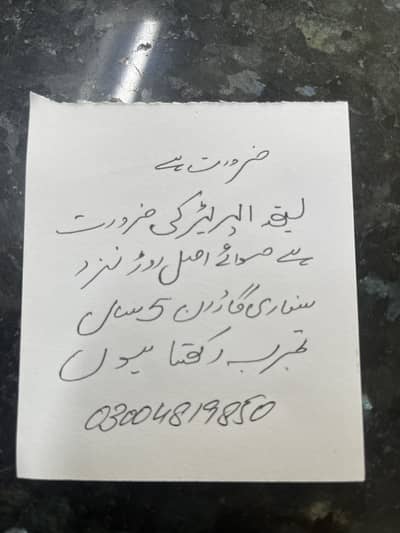 ضرورت ہے
لیتھ اپریٹر کی ضرورت
ہے صوائے اصل روڑ نزد
سفاری گارڈن 5 سال
تجربہ رکھتا ہوں
03004819850